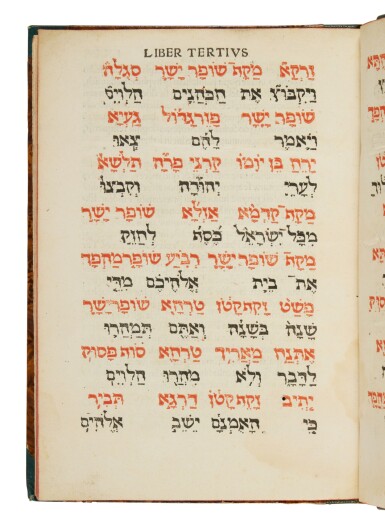 LIBER TERTIVS
זרקא מקף שופר ישר סגלה
ויקבוץ את הכהנים הלוים
שופר ישר פזר גדול געיא
ויאמר להם צאו
ירח בן יומו קרני פרה תלשא
לערי יהודה וקבצו
מקף קדמא אזלא שופר ישר
מכל ישראל כסף לחזק
מקף שופר ישר רביע שופר מהפך
את־ בית אלהיכם מדי
פשט זקף קטן טרחא שופר ישר
שנה בשנה ואתם תמהרו
אתנח מאריך טרחא סוף פסוק
לדבר ולא מהרו הלוים
יתיב זקף קטן דרגא תביר
כי האמנם ישב אלהים